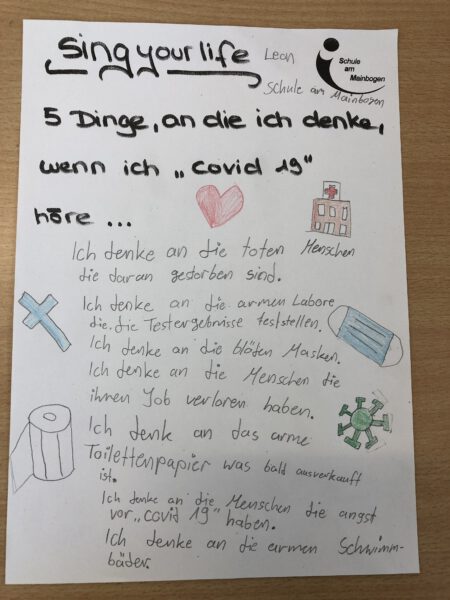 sing your life
Lean
Schule
am
Mainbogen
Schule am Mainbogen
5 Dinge, an die ich denke,
wenn ich „Covid 19"
höre ...
Ich denke an die toten Menschen
die daran gestorben sind.
Ich denke an die armen Labore
die, die Testergebnisse feststellen.
Ich denke an die blöden Masken.
Ich denke an die Menschen die
ihnen Job verloren haben.
Ich denk an das arme
Toilettenpapier was bald ausverkauft
ist.
Ich denke an die Menschen die angst
vor „Covid 19" haben.
Ich denke an die armen Schwimm-
bäder.